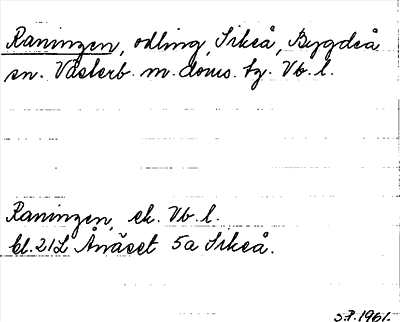 Raningen, odling, Sikeå, Bygdeå
sn. Västerb. m. doms. tg. Vb. l.
Raningen, ek. Vb. l.
bl. 21L Ånäset 5a Sikeå.
1961.